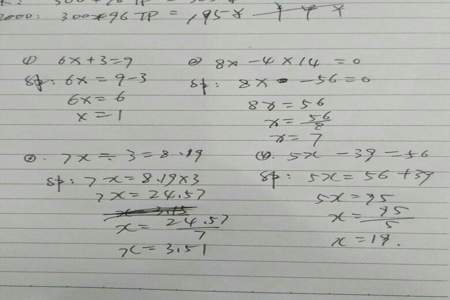 300×96 TP = ,95×
① 6x+3=9
sp: 6x = 9-3
6x = 6
x = 1
② 8x - 4×14 = 0
sp: 8x - 56 = 0
8x = 56
x = 56/8
x = 7
③. 7x ÷ 3 = 8.19
sp: 7x = 8.19×3
7x = 24.57
x = 24.57/7
x = 3.51
④. 5x - 39 = 56
sp: 5x = 56 + 39
5x = 95
x = 95/5
x = 19.